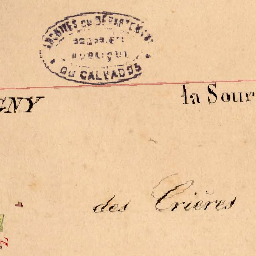 ARCHIVES DU DÉPARTEMENT
DU CALVADOS
GNY
la Sour
des Crières